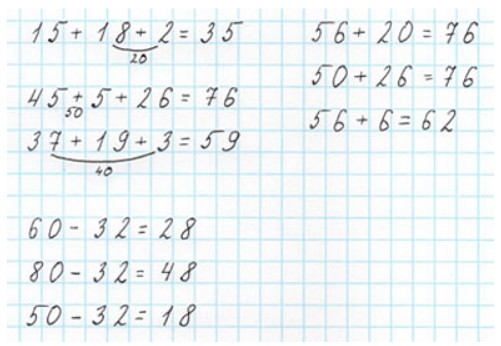 15 + 18 + 2 = 35
20
45 + 5 + 26 = 76
50
37 + 19 + 3 = 59
40
60 - 32 = 28
80 - 32 = 48
50 - 32 = 18
56 + 20 = 76
50 + 26 = 76
56 + 6 = 62